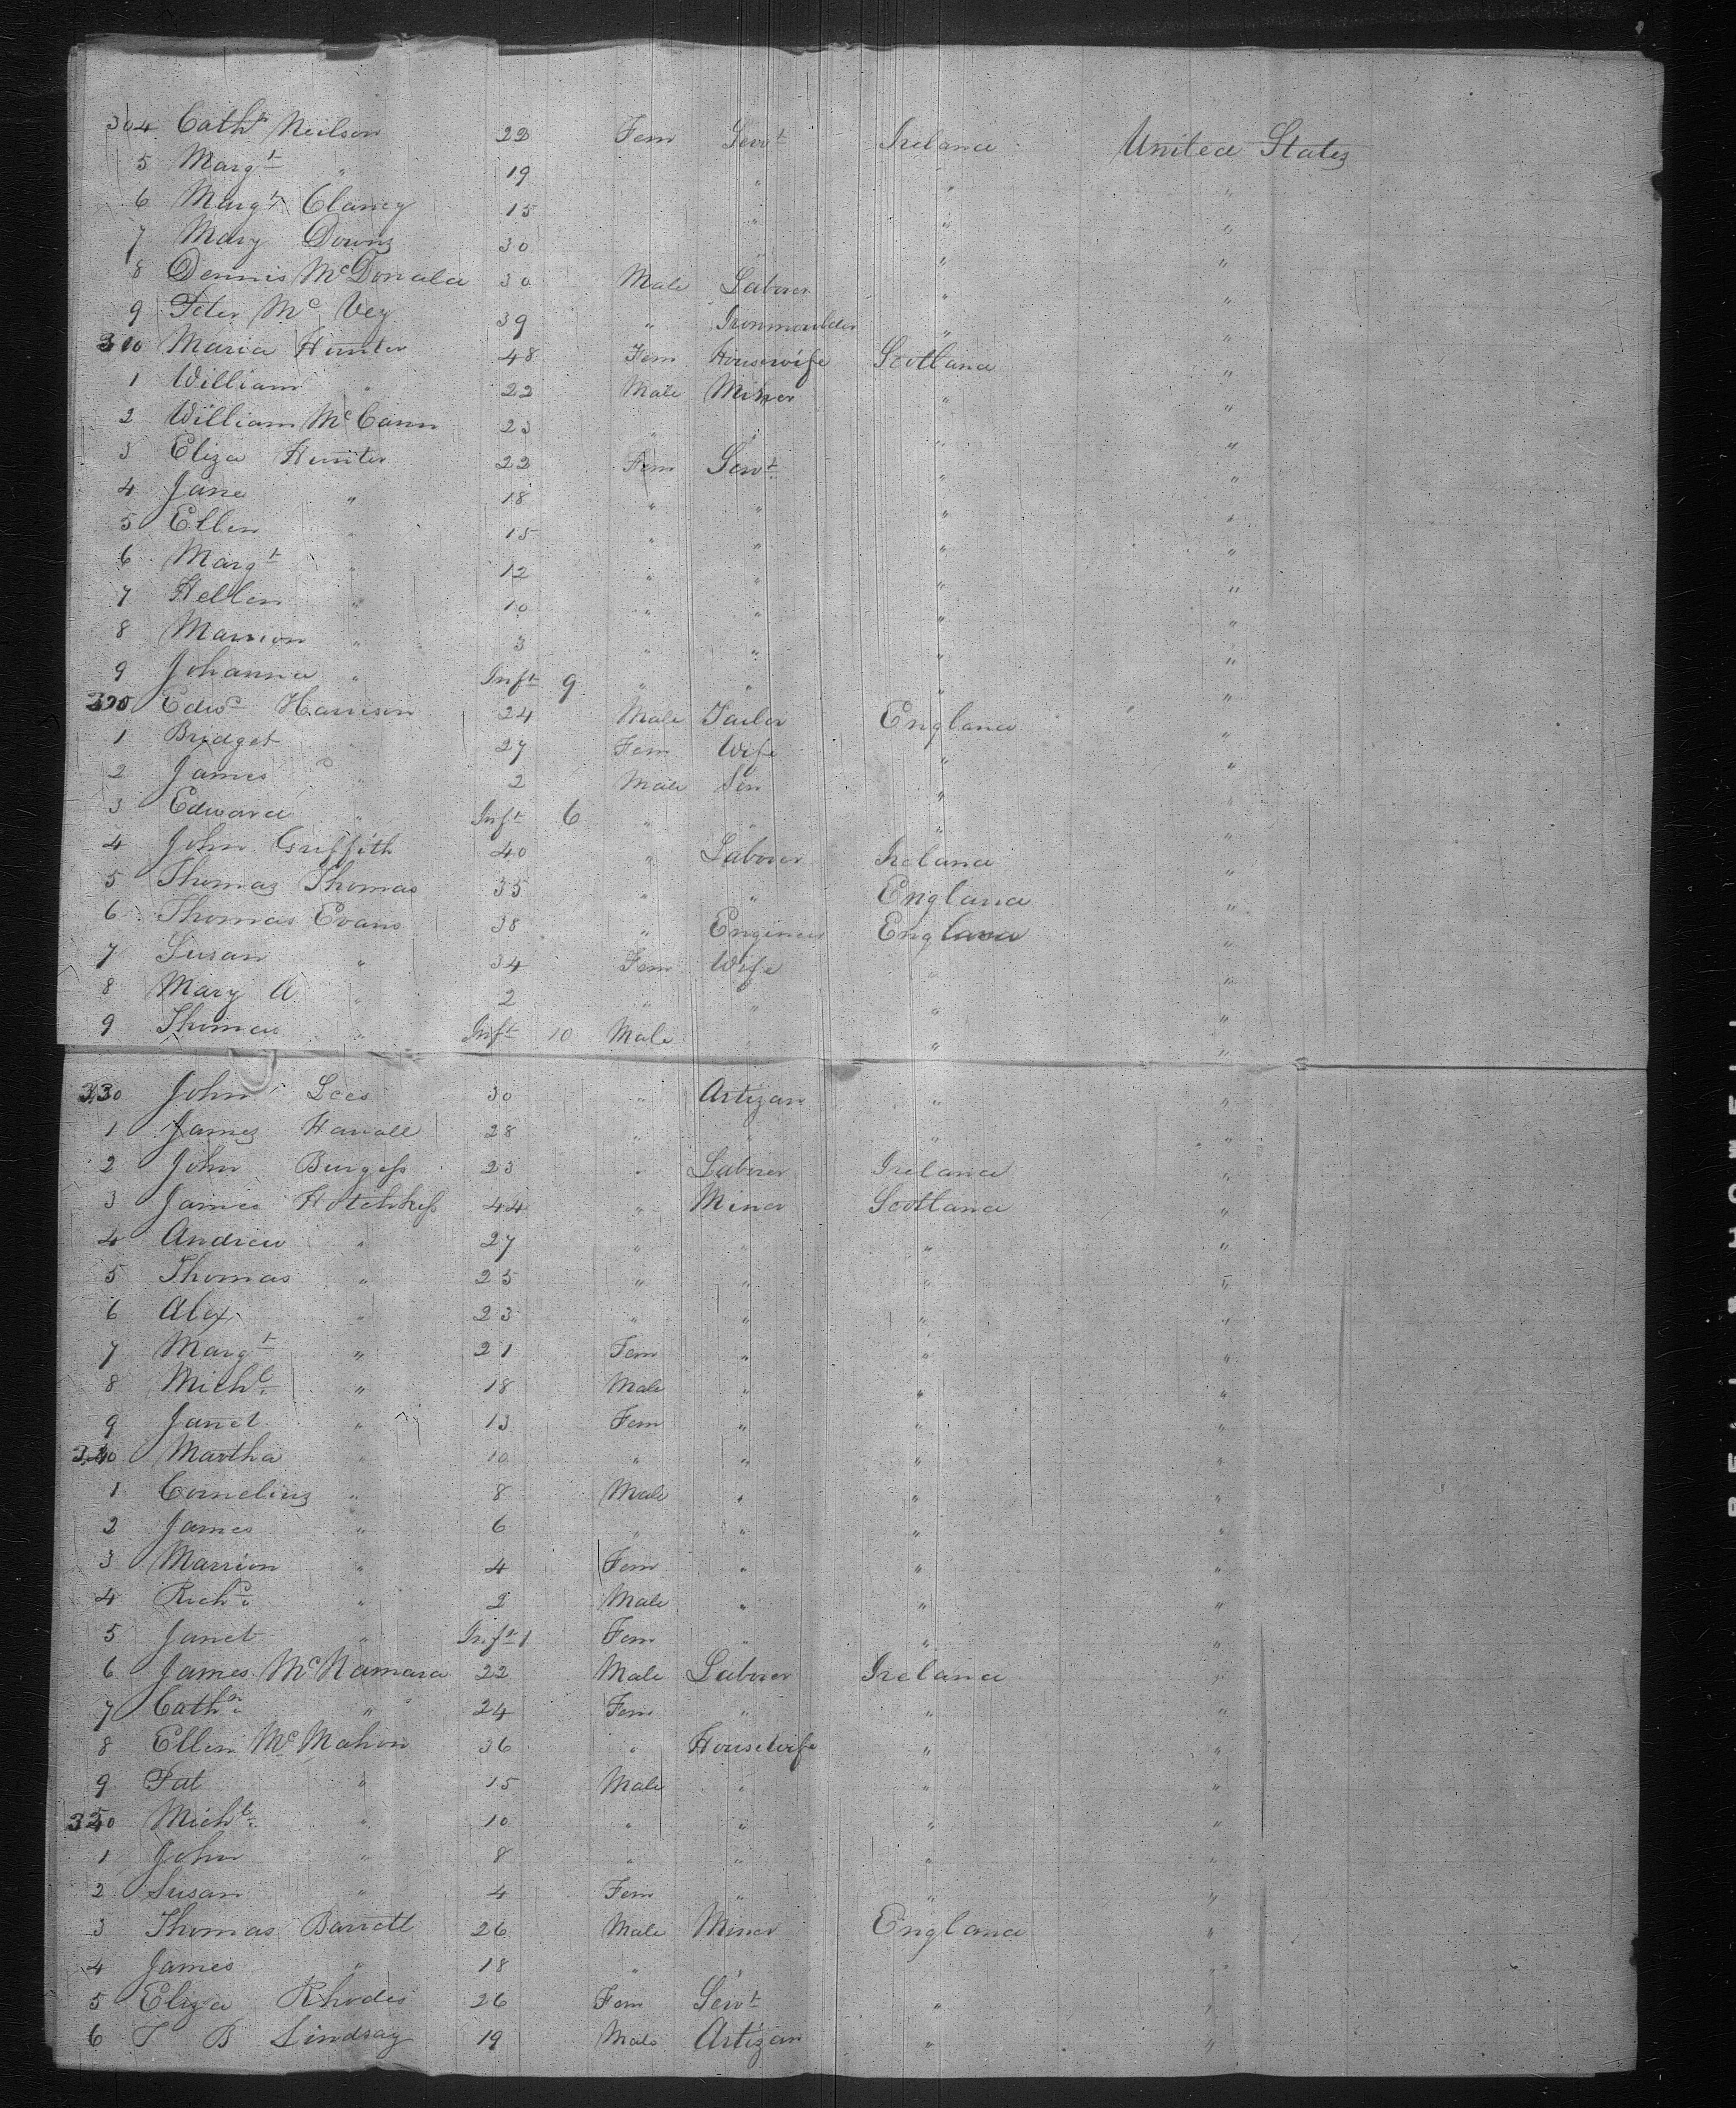 304 Cathn Neilson 22 Fem Servt Ireland United States
5 Margt " 19 " " "
6 Margt Clancy 15 " " "
7 Mary Downs 30 " " "
8 Dennis McDonald 30 Male Laborer " "
9 Peter McVey 39 " Ironmoulder " "
310 Maria Hunter 48 Fem Housewife Scotland "
1 William " 22 Male Miner " "
2 William McCann 23 " " " "
3 Eliza Hunter 22 Fem Servt " "
4 Jane " 18 " " " "
5 Ellen " 15 " " " "
6 Margt " 12 " " " "
7 Hellen " 10 " " " "
8 Marrion " 3 " " " "
9 Johanna " Inft 9 " " " "
320 Edwd Harrison 24 Male Tailor England "
1 Bridget " 27 Fem Wife " "
2 James " 2 Male Son " "
3 Edward " Inft 6 " " " "
4 John Griffith 40 " Laborer Ireland "
5 Thomas Thomas 35 " " England "
6 Thomas Evans 38 " Engineer England "
7 Susan " 34 Fem Wife " "
8 Mary A " 2 " " " "
9 Thomas " Inft 10 Male " " "
330 John Lees 30 " Artizan " "
1 James 28 " " " "
2 John Burgess 23 " Laborer Ireland "
3 James Hotchkiss 44 " Miner Scotland "
4 Andrew " 27 " " " "
5 Thomas " 25 " " " "
6 Alex " 23 " " " "
7 Margt " 21 Fem " " "
8 Michl " 18 Male " " "
9 Janet " 13 Fem " " "
340 Martha " 10 " " " "
1 Cornelius " 8 Male " " "
2 James " 6 " " " "
3 Marrion " 4 Fem " " "
4 Richd " 2 Male " " "
5 Janet " Inft 1 Fem " " "
6 James McNamara 22 Male Laborer Ireland "
7 Cathn " 24 Fem " " "
8 Ellen McMahon 36 " Housewife " "
9 Pat " 15 Male " " "
350 Michl " 10 " " " "
1 John " 8 " " " "
2 Susan " 4 Fem " " "
3 Thomas Barrett 26 Male Miner England "
4 James " 18 " " "
5 Eliza Rhodes 26 Fem Servt " "
6 T B Lindsay 19 Male Artizan " "